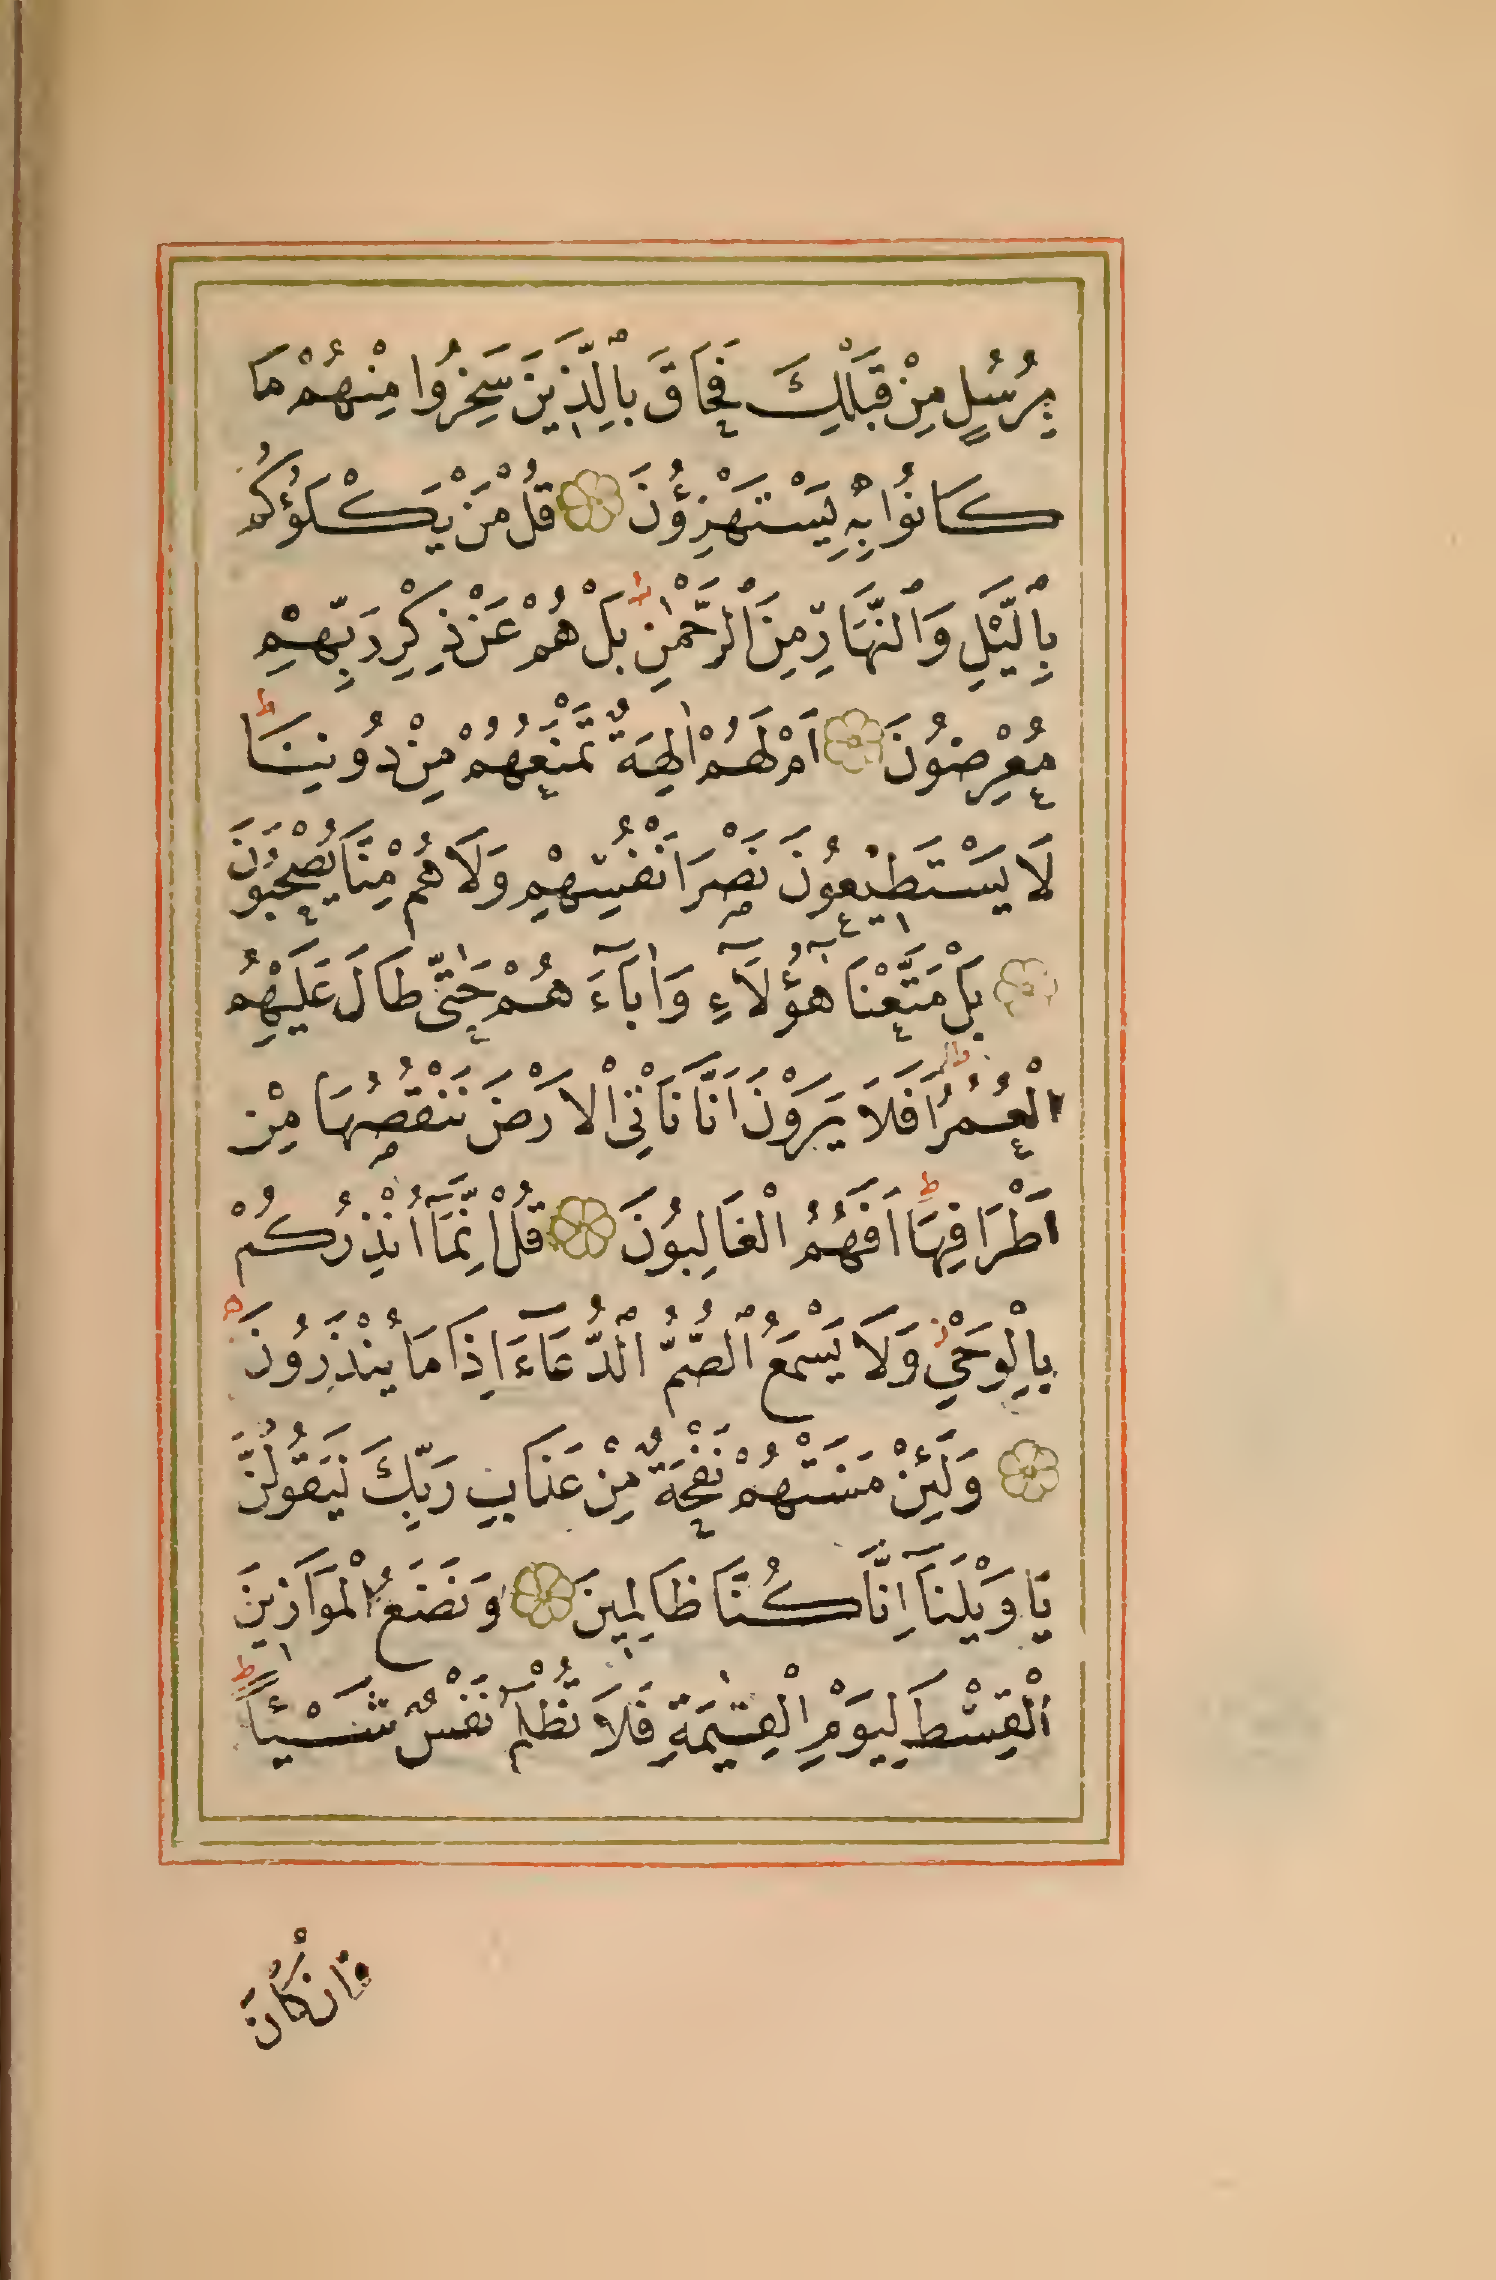 بِرُسُلٍ مِنْ قَبْلِكَ فَحَاقَ بِالَّذِينَ سَخِرُوا مِنْهُمْ مَا
كَانُوا بِهِ يَسْتَهْزِؤُنَ قُلْ مَنْ يَكْلَؤُكُمْ
بِالَّيْلِ وَالنَّهَارِ مِنَ الرَّحْمٰنِ ط بَلْ هُمْ عَنْ ذِكْرِ رَبِّهِمْ
مُعْرِضُونَ اَمْ لَهُمْ اٰلِهَةٌ تَمْنَعُهُمْ مِنْ دُونِنَا ط
لَا يَسْتَطِيعُونَ نَصْرَ اَنْفُسِهِمْ وَلَا هُمْ مِنَّا يُصْحَبُونَ
بَلْ مَتَّعْنَا هٰٓؤُلَآءِ وَاٰبَآءَ هُمْ حَتّٰى طَالَ عَلَيْهِمُ
الْعُمُرُ ط اَفَلَا يَرَوْنَ اَنَّا نَاْتِى الْاَرْضَ نَنْقُصُهَا مِنْ
اَطْرَافِهَا ط اَفَهُمُ الْغَالِبُونَ قُلْ اِنَّمَآ اُنْذِرُكُمْ
بِالْوَحْىِ ز وَلَا يَسْمَعُ الصُّمُّ الدُّعَآءَ اِذَا مَا يُنْذَرُونَ
وَلَئِنْ مَسَّتْهُمْ نَفْحَةٌ مِنْ عَذَابِ رَبِّكَ لَيَقُولُنَّ
يَا وَيْلَنَآ اِنَّا كُنَّا ظَالِمِينَ وَنَضَعُ الْمَوَازِينَ
الْقِسْطَ لِيَوْمِ الْقِيٰمَةِ فَلَا تُظْلَمُ نَفْسٌ شَيْئًا ط
وَاِنْ كَانَ